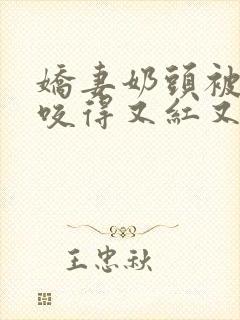 嬌妻奶頭被
咬得又紅又
王忠秋